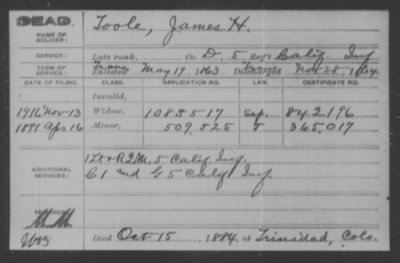 DEAD.
NAME OF SOLDIER: Toole, James H.
SERVICE: Late rank, Co. D, 5 Reg't Calif. Inf
TERM OF SERVICE: Enlisted May 19, 1863 Discharged Nov 28, 1864
DATE OF FILING. CLASS. APPLICATION NO. LAW. CERTIFICATE NO.
Invalid,
1916 Nov 13 Widow, 1085517 842196
1891 Apr 16 Minor, 509,525 365,017
ADDITIONAL SERVICES: 1 Lt & R.Q.M. 5 Calif. Inf.
C 1 and G 5 Calif Inf
Died Oct 15, 1884, at Trinidad, Colo.